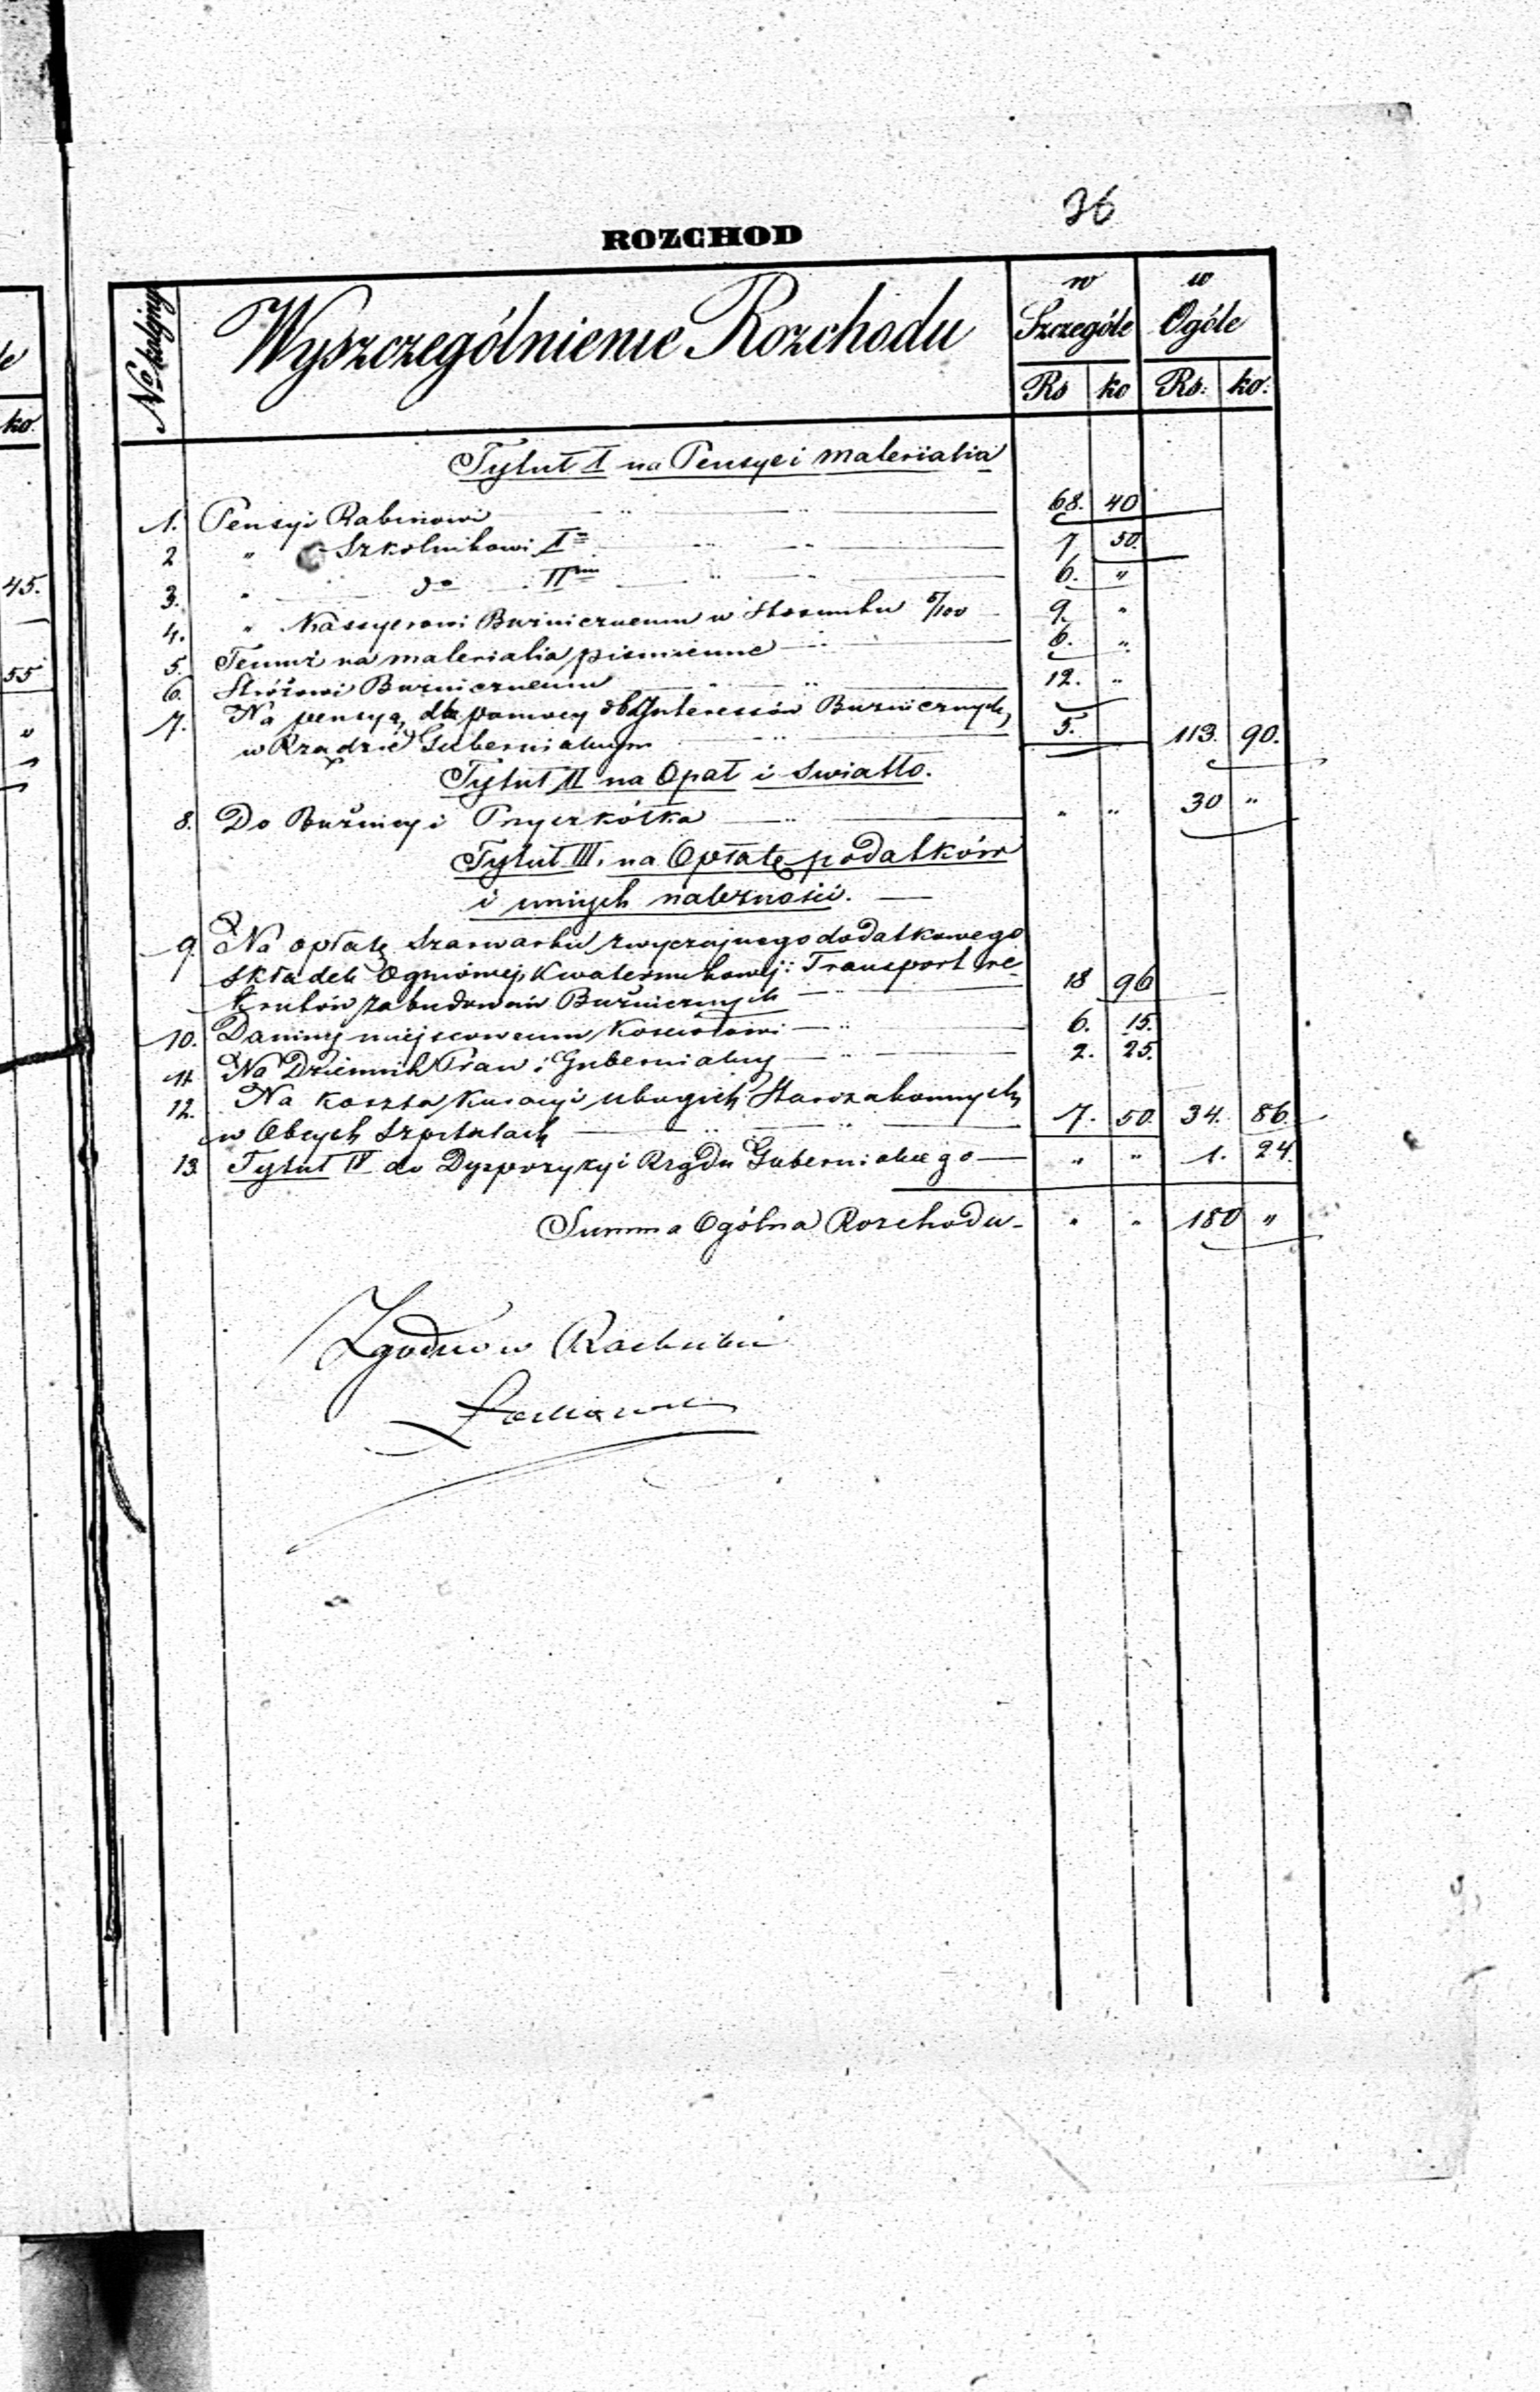 36
ROZCHOD
No kolejny
Wyszczególnienie Rozchodu
w Szczególe
w Ogóle
Rs ko Rs: ko:
Tytuł I na Pensye i materialia
1. Pensyi Rabinowi 68. 40
2 " Szkolnikowi I 7 50.
3. " do IIm 6. "
4. " Kassyerowi Bużnicznemu w Stosunku 8/100 9. "
5. Temuż na materialia piśmienne 6. "
6. Stróżowi Bużnicznemu 12. "
7. Na pensyą dla pomocy Interessów Bużnicznych
w Rządzie Gubernialnym 5. 113. 90.
Tytuł II na Opał i Swiatło.
8. Do Bużnicy i Przyszkółka " " 30 "
Tytuł III. na Opłatę podatków
i innych należności.
9. Na opłatę Szarwarku zwyczajnego dodatkowego
Składek Ogniowej, Kwaterunkowej: Transport re-
krutów zabudowań Bużnicznych 18 96
10. Daniny miejscowemu Kosciołowi 6. 15.
11 Na Dziennik Praw i Gubernialny 2. 25.
12. Na koszta Kuracyi ubogich Starozakonnych
w Obcych Szpitalach 7. 50. 34. 86.
13. Tytuł IV do Dyspozycyi Rządu Gubernialnego " " 1. 24.
Summa Ogólna Rozchodu " " 180 "
Zgodno w Rachubie
le
ko.
45.
55
"